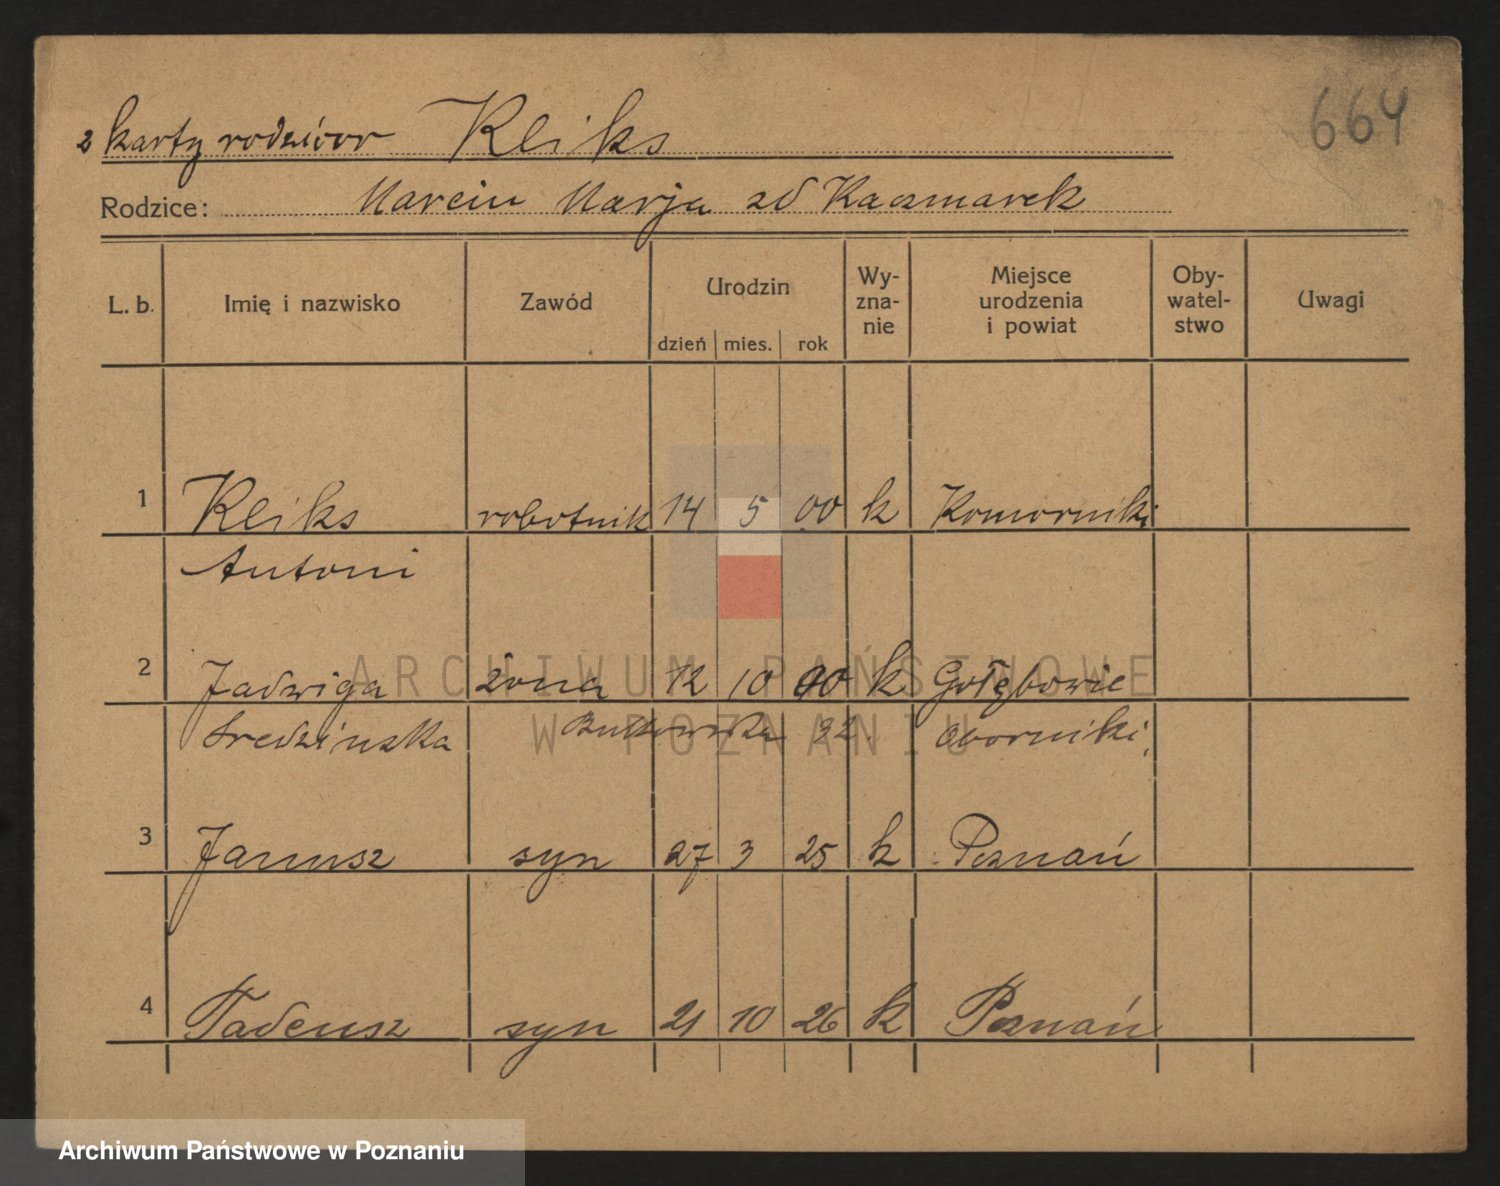 664
z karty rodziców Kliks
Rodzice: Marcin Marja zd Kaczmarek
L. b. Imię i nazwisko Zawód Urodzin Wy-zna-nie Miejsce urodzenia i powiat Oby-watel-stwo Uwagi
dzień mies. rok
1 Kliks robotnik 14 5 00 k Komorniki
Antoni
2 Jadwiga żona 12 10 00 k Gołębowie
Sredzinska 32 Oborniki
3 Janusz syn 27 3 25 k Poznań
4 Tadeusz syn 21 10 26 k Poznań
ARCHIWUM PAŃSTWOWE
W POZNANIU
Archiwum Państwowe w Poznaniu